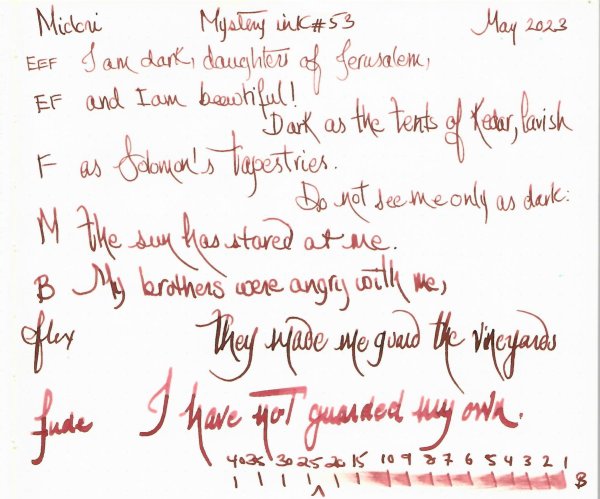 Midori Mystery ink #53 May 2023
EEF I am dark, daughters of Jerusalem,
EF and I am beautiful!
Dark as the tents of Kedar, lavish
F as Solomon's tapestries.
Do not see me only as dark:
M the sun has stared at me.
B My brothers were angry with me,
flex they made me guard the vineyards
fude I have not guarded my own.
40 35 30 25 20 15 10 9 8 7 6 5 4 3 2 1
B